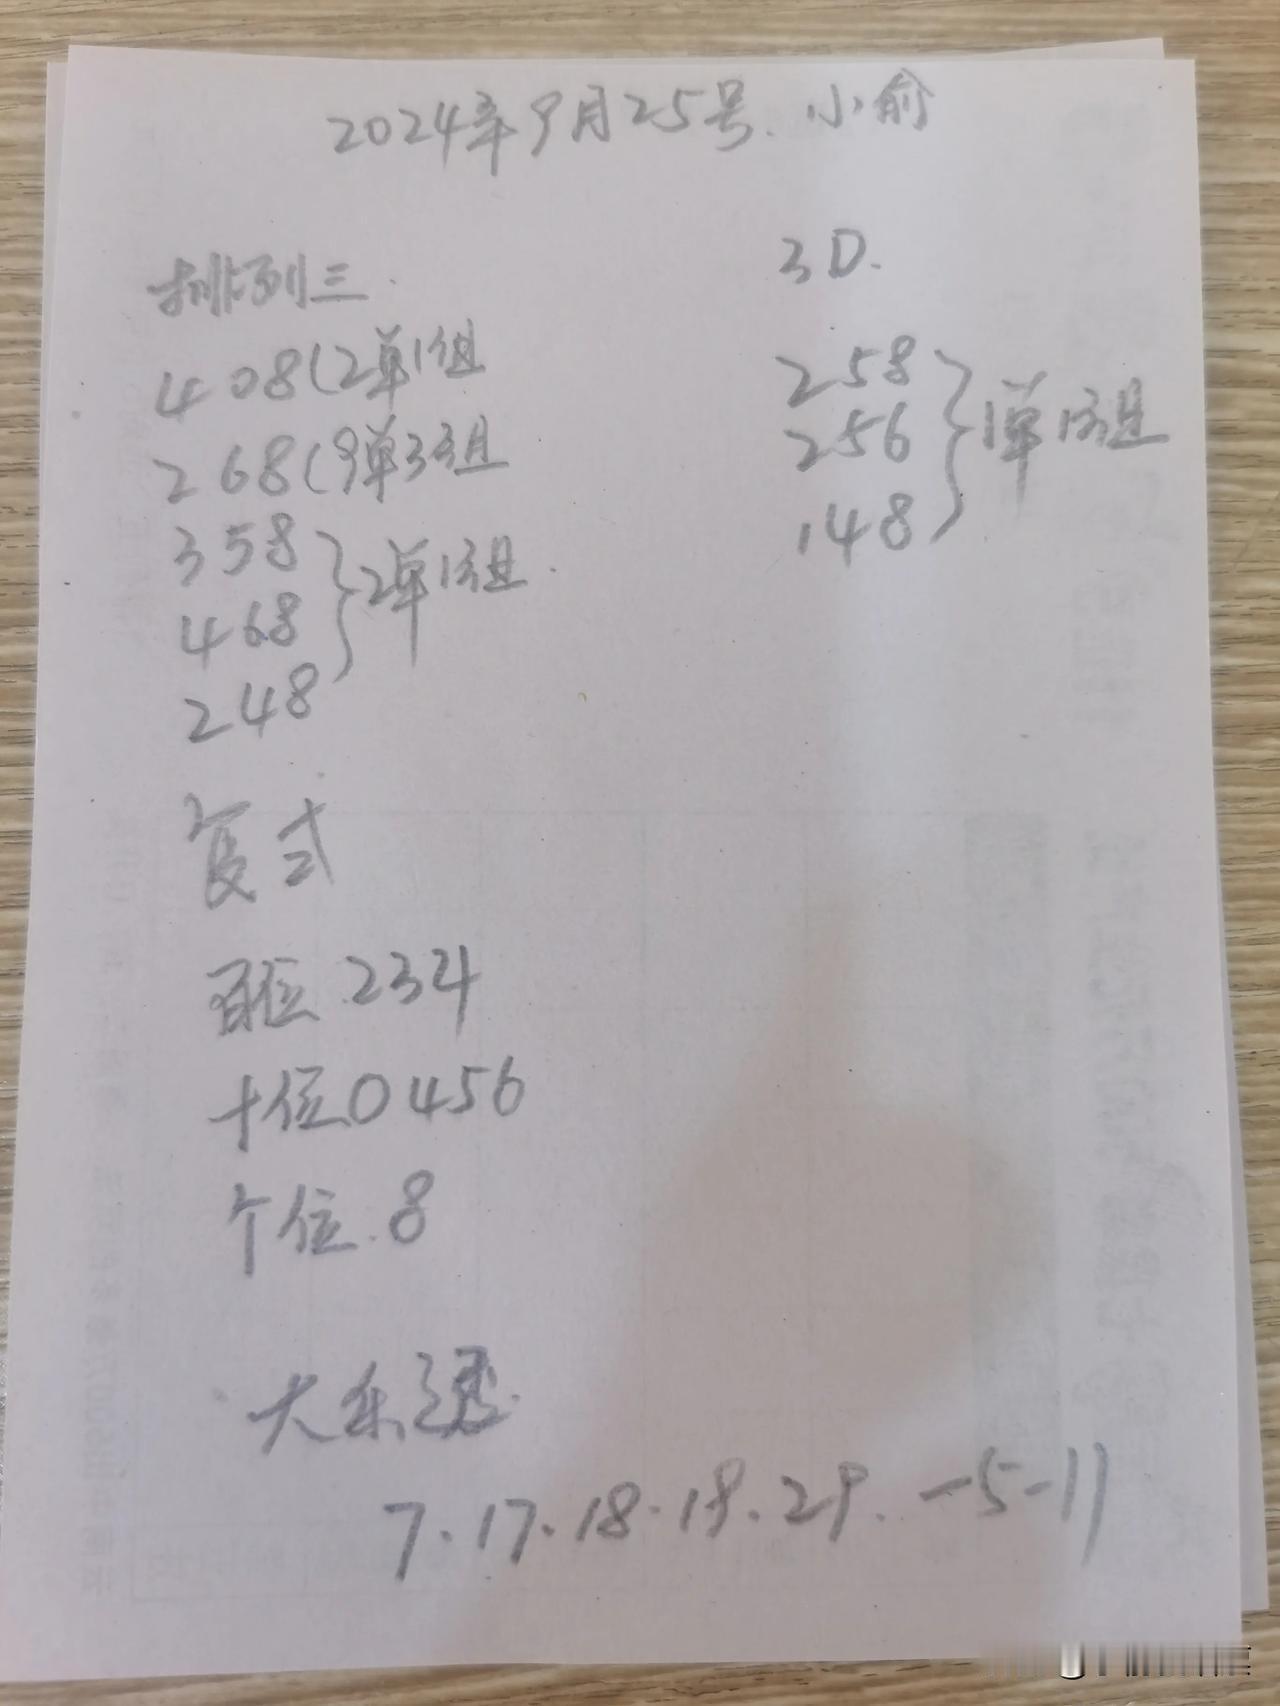 2024年9月25号. 小俞
排列三.
408(2单1组
268(9单3组
358
468
248
2单1组.
3D.
258
256
148
1单1组
复式
百位.234
十位0456
个位.8
大乐透.
7.17.18.19.29.-5-11